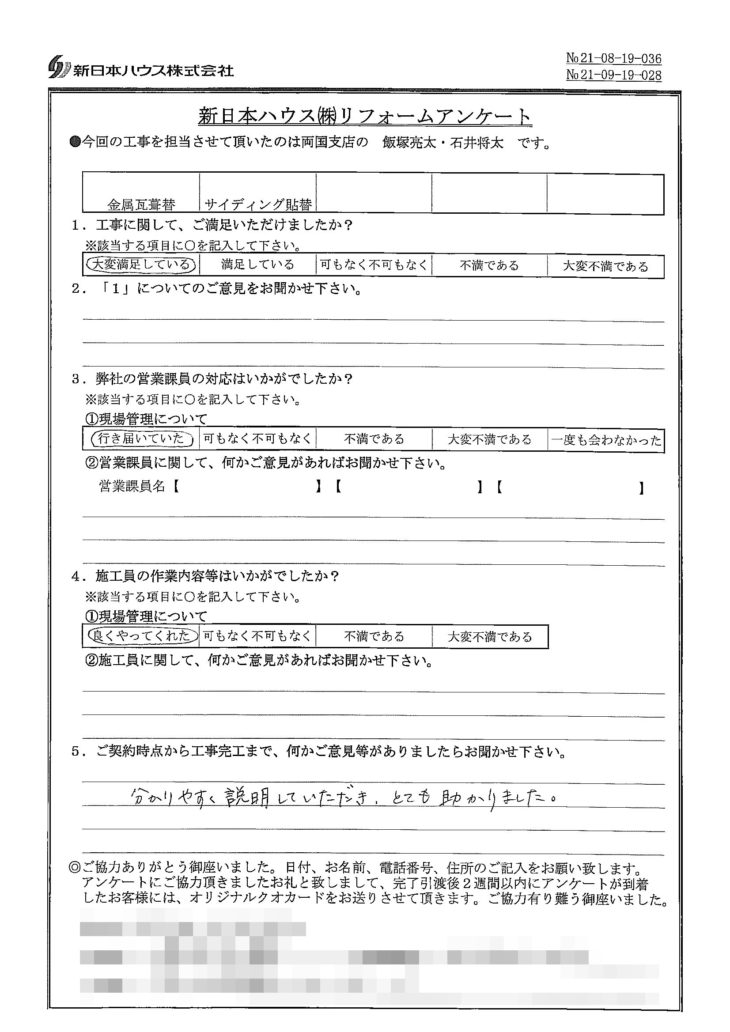 新日本ハウス株式会社
№21-08-19-036
№21-09-19-028
新日本ハウス㈱リフォームアンケート
●今回の工事を担当させて頂いたのは両国支店の 飯塚亮太・石井将太 です。
金属瓦葺替 サイディング貼替
1．工事に関して、ご満足いただけましたか？
※該当する項目に○を記入して下さい。
大変満足している 満足している 可もなく不可もなく 不満である 大変不満である
2．「1」についてのご意見をお聞かせ下さい。
3．弊社の営業課員の対応はいかがでしたか？
※該当する項目に○を記入して下さい。
①現場管理について
行き届いていた 可もなく不可もなく 不満である 大変不満である 一度も会わなかった
②営業課員に関して、何かご意見があればお聞かせ下さい。
営業課員名【 】【 】【 】
4．施工員の作業内容等はいかがでしたか？
※該当する項目に○を記入して下さい。
①現場管理について
良くやってくれた 可もなく不可もなく 不満である 大変不満である
②施工員に関して、何かご意見があればお聞かせ下さい。
5．ご契約時点から工事完工まで、何かご意見等がありましたらお聞かせ下さい。
分かりやすく説明していただき、とても助かりました。
◎ご協力ありがとう御座いました。日付、お名前、電話番号、住所のご記入をお願い致します。
アンケートにご協力頂きましたお礼と致しまして、完了引渡後2週間以内にアンケートが到着
したお客様には、オリジナルクオカードをお送りさせて頂きます。ご協力有り難う御座いました。